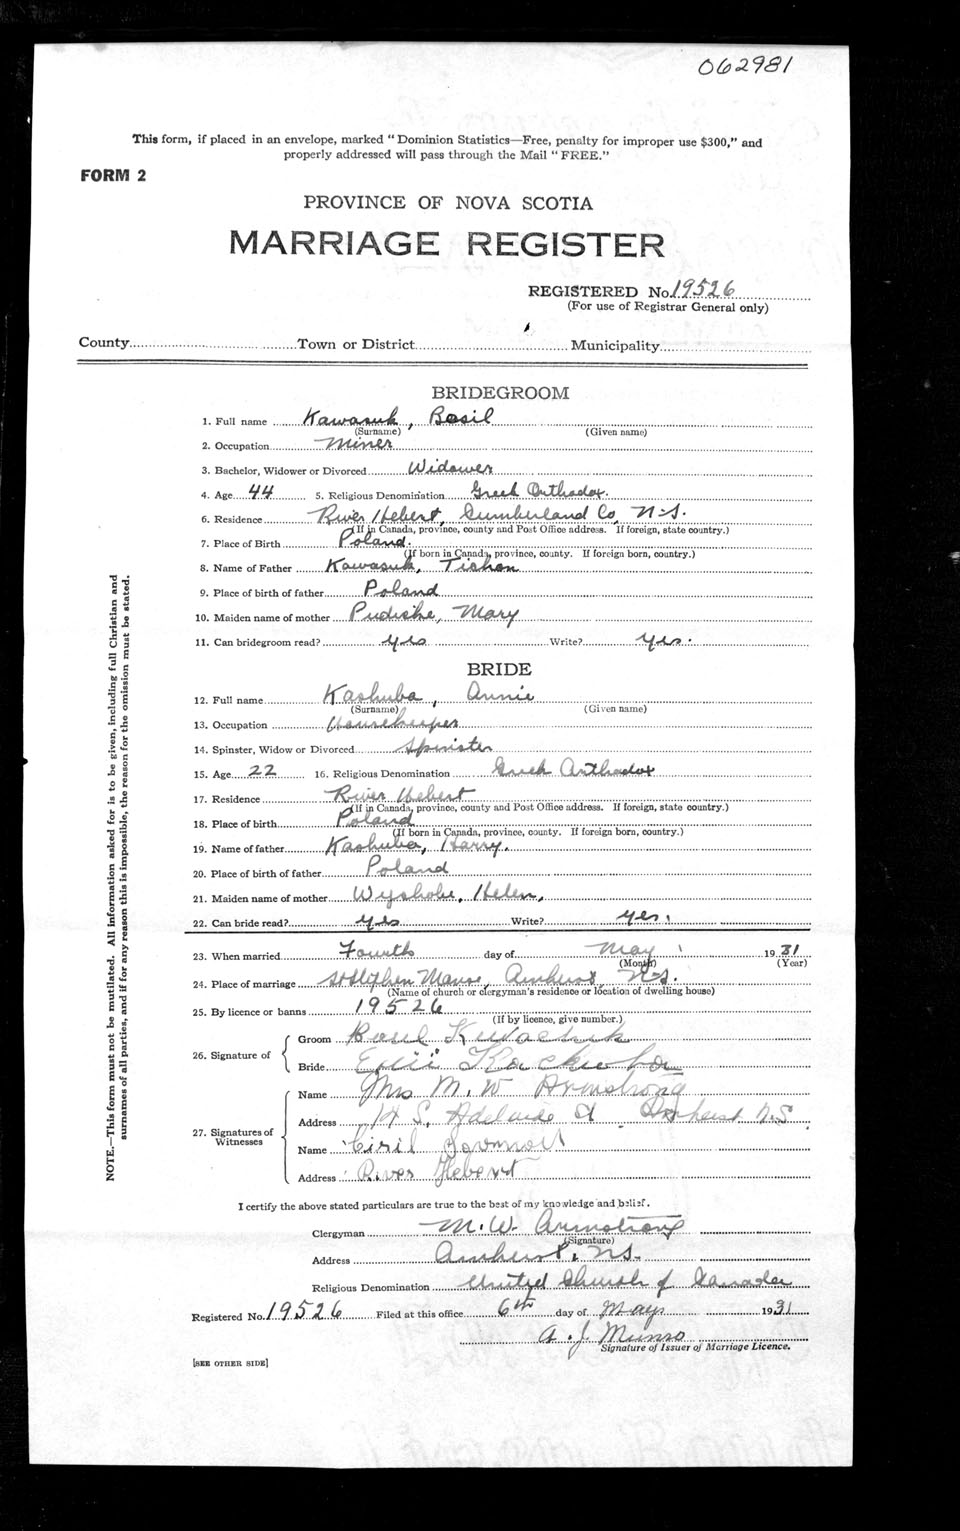 062981
This form, if placed in an envelope, marked "Dominion Statistics—Free, penalty for improper use $300," and
properly addressed will pass through the Mail "FREE."
FORM 2
PROVINCE OF NOVA SCOTIA
MARRIAGE REGISTER
REGISTERED No. 19526
(For use of Registrar General only)
County Town or District Municipality
BRIDEGROOM
1. Full name Kawasuk, Basil
(Surname) (Given name)
2. Occupation Miner
3. Bachelor, Widower or Divorced Widower
4. Age 44 5. Religious Denomination Greek Orthodox.
6. Residence River Hebert, Cumberland Co, N-S.
(If in Canada, province, county and Post Office address. If foreign, state country.)
7. Place of Birth Poland.
(If born in Canada, province, county. If foreign born, country.)
8. Name of Father Kawasuk, Tishon
9. Place of birth of father Poland
10. Maiden name of mother Mary
11. Can bridegroom read? yes Write? yes.
BRIDE
12. Full name Kashuba, Annie
(Surname) (Given name)
13. Occupation Housekeeper
14. Spinster, Widow or Divorced Spinster
15. Age 22 16. Religious Denomination Greek Orthodox
17. Residence River Hebert
(If in Canada, province, county and Post Office address. If foreign, state country.)
18. Place of birth Poland
(If born in Canada, province, county. If foreign born, country.)
19. Name of father Kashuba, Harry.
20. Place of birth of father Poland
21. Maiden name of mother Helen,
22. Can bride read? yes Write? yes.
23. When married Fourth day of May 1931
(Month) (Year)
24. Place of marriage St Stephen Manse, Amherst, N-S.
(Name of church or clergyman's residence or location of dwelling house)
25. By licence or banns 19526
(If by licence, give number.)
26. Signature of Groom
Bride
27. Signatures of Witnesses Name Mrs M. W Armstrong
Address 14 S. Adelaide St Amherst N.S
Name
Address River Hebert
I certify the above stated particulars are true to the best of my knowledge and belief.
Clergyman M. W. Armstrong
(Signature)
Address Amherst, N.S.
Religious Denomination United Church of Canada
Registered No. 19526 Filed at this office 6th day of May 1931
A. J. Munro
Signature of Issuer of Marriage Licence.
[SEE OTHER SIDE]
NOTE.—This form must not be mutilated. All information asked for is to be given, including full Christian and
surnames of all parties, and if for any reason this is impossible, the reason for the omission must be stated.